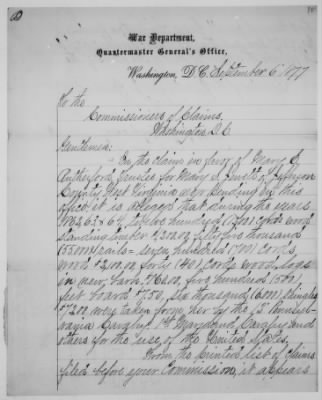 War Department,
Quartermaster General's Office,
Washington, D.C. September 6, 1877
To the
Commissioners of Claims,
Washington D.C.
Gentlemen:
In the claim in favor of Mary C.
Rutherford, Trustee for Mary Smith Jefferson
County West Virginia now pending in this
office, it is alleged that during the years
1862, 63 & 64, hundred cords wood
standing timber thousand
rails seven hundred (700) cords
wood $2,100.00 forty (40) cords wood, logs
in new barn five hundred (500)
feet boards $7.50, six thousand (6000) shingles
were taken from her by the Pennsyl-
vania Cavalry, 1st Maryland Cavalry and
others for the use of the United States.
From the printed list of claims
filed before your Commission, it appears